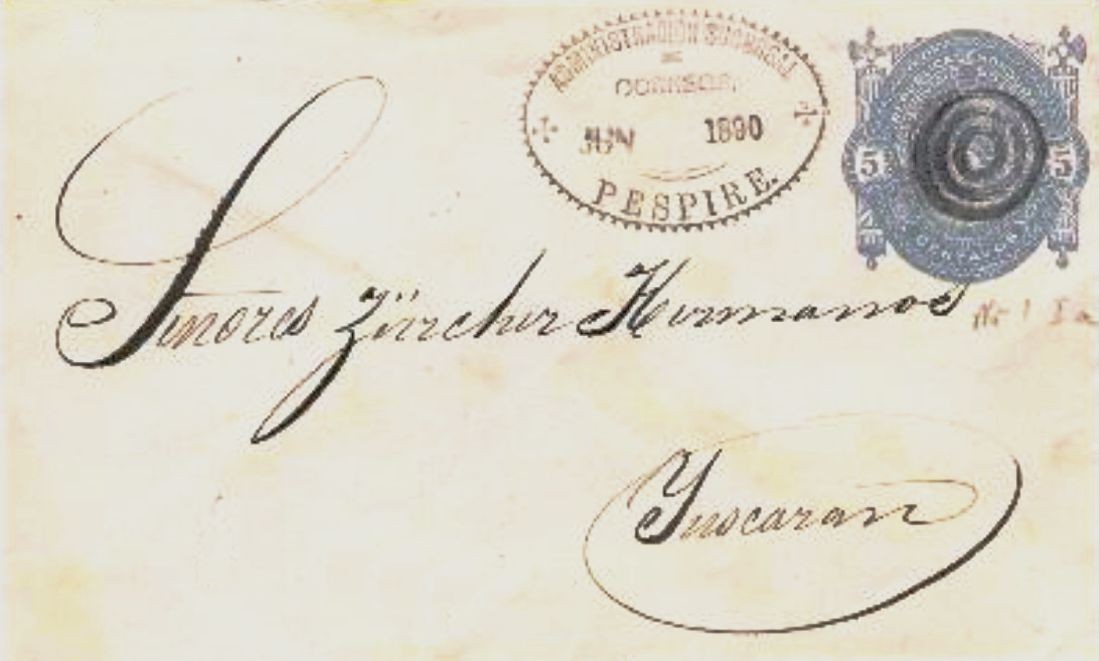 ADMINISTRACION SUCURSAL
DE
CORREOS.
JUN 1890
PESPIRE.
5 5
CENTAVOS
Señores Zürcher Hermanos
Yuscaran